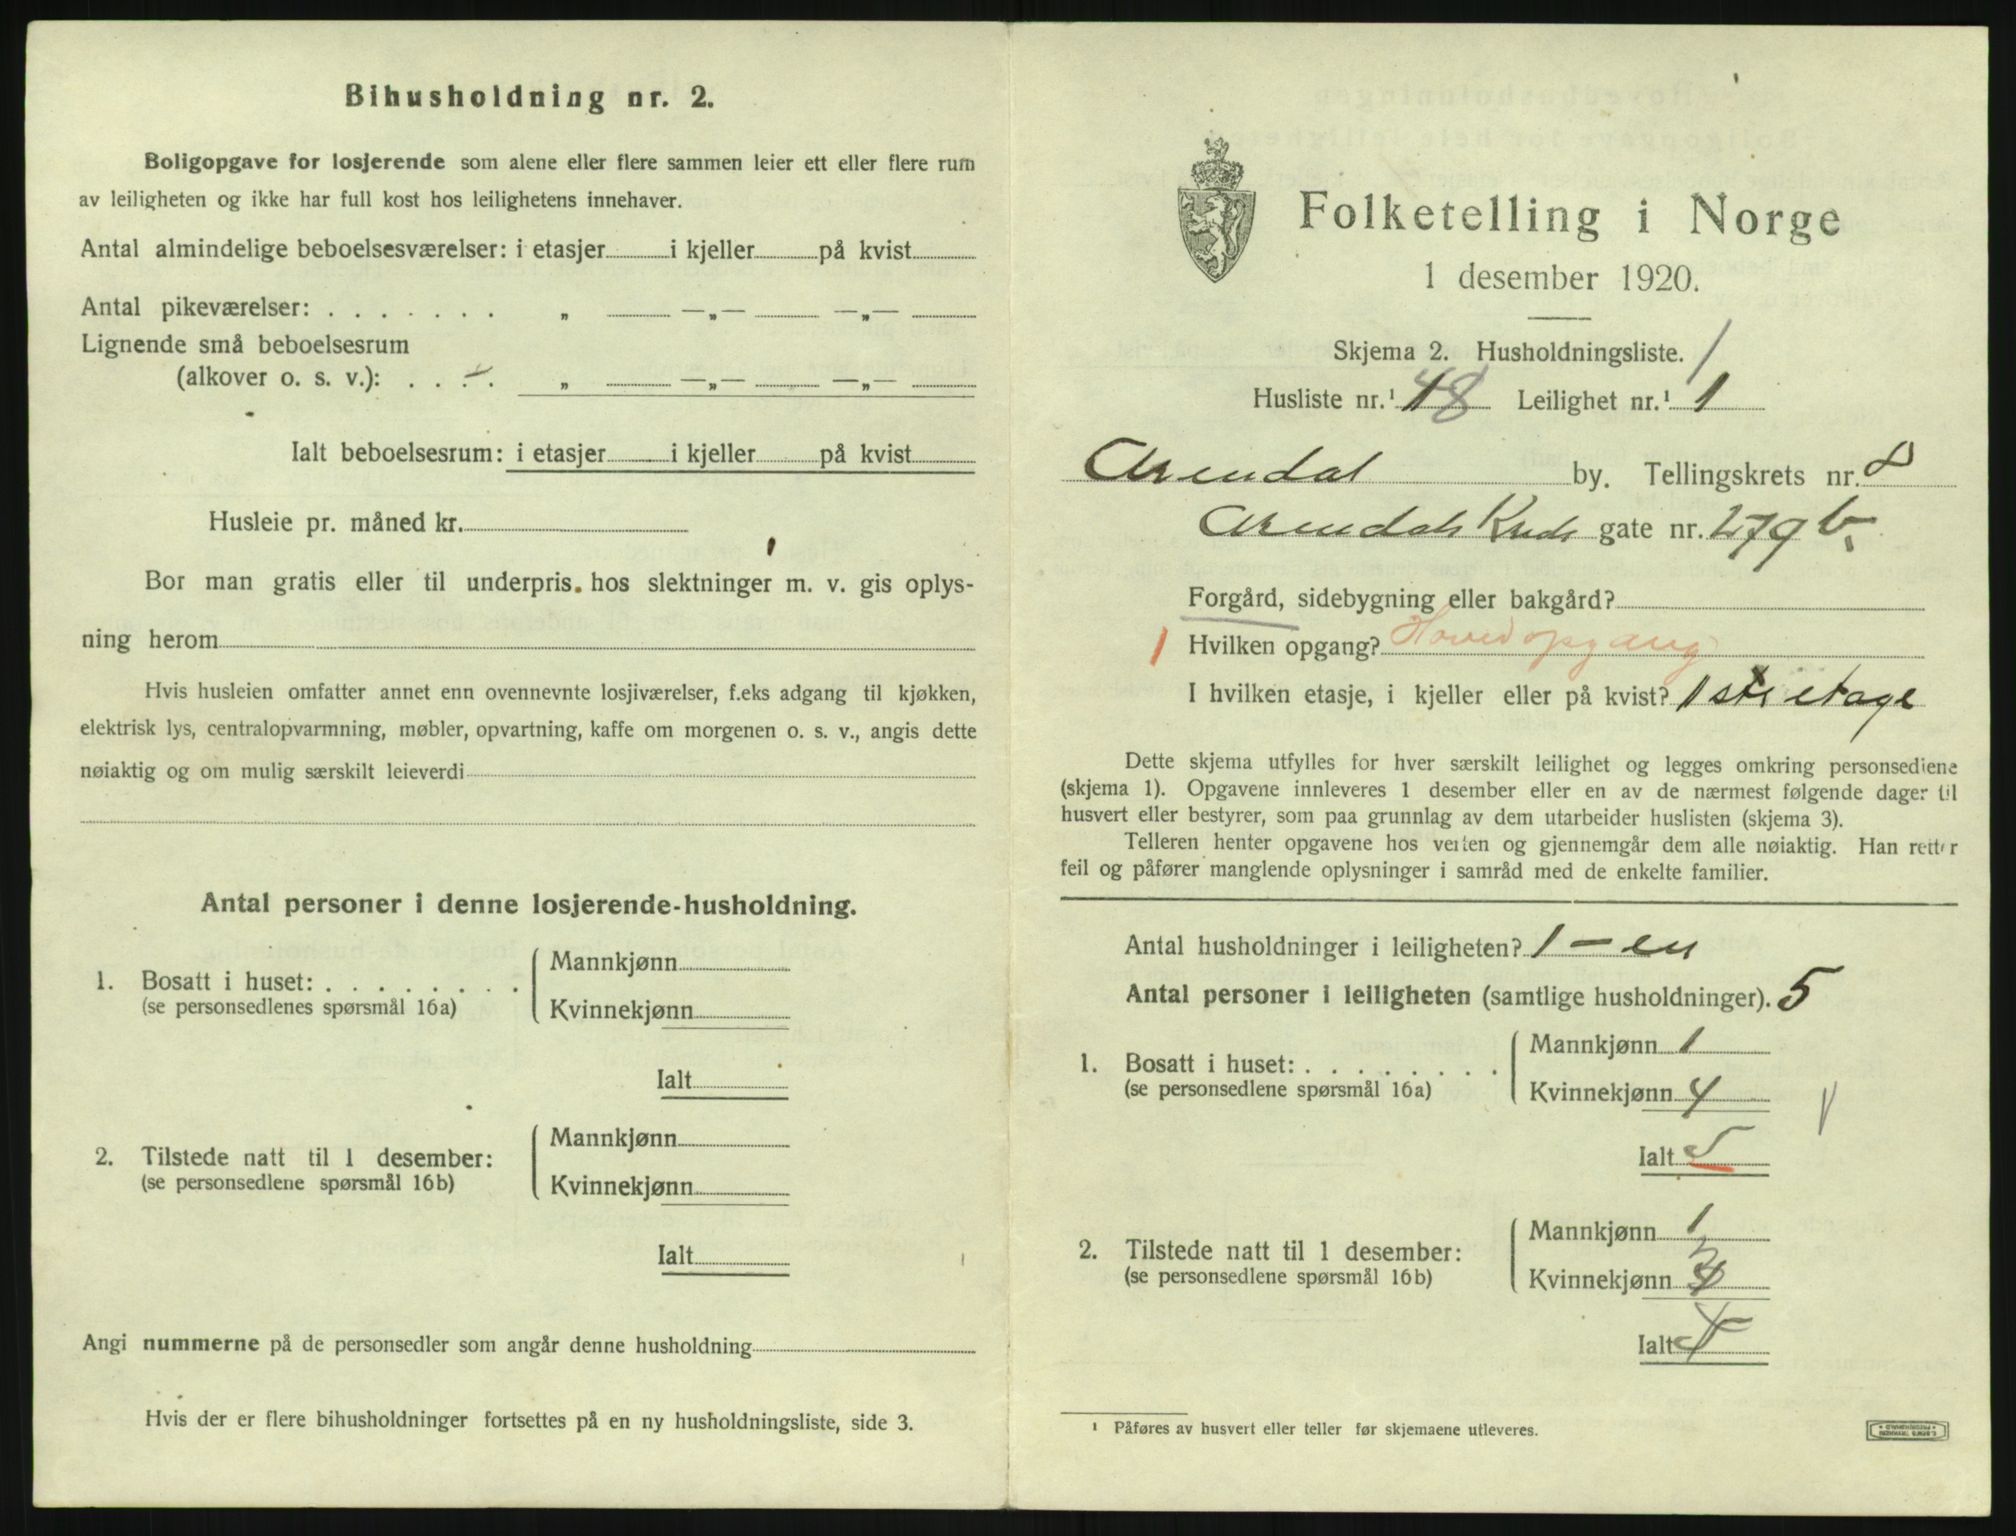 Bihusholdning nr. 2.
Boligopgave for losjerende som alene eller flere sammen leier ett eller flere rum
av leiligheten og ikke har full kost hos leilighetens innehaver.
Antal almindelige beboelsesværelser: i etasjer i kjeller på kvist
Antal pikeværelser: . . . . . . . „ —„— —„—
Lignende små beboelsesrum
(alkover o. s. v.): . . . . „ —„— —„—
Ialt beboelsesrum: i etasjer i kjeller på kvist
Husleie pr. måned kr.
Bor man gratis eller til underpris hos slektninger m. v. gis oplys-
ning herom
Hvis husleien omfatter annet enn ovennevnte losjiværelser, f.eks adgang til kjøkken,
elektrisk lys, centralopvarmning, møbler, opvartning, kaffe om morgenen o. s. v., angis dette
nøiaktig og om mulig særskilt leieverdi
Antal personer i denne losjerende-husholdning.
1. Bosatt i huset: . . . . . . . .
(se personsedlenes spørsmål 16a)
Mannkjønn
Kvinnekjønn
Ialt
2. Tilstede natt til 1 desember:
(se personsedlene spørsmål 16b)
Mannkjønn
Kvinnekjønn
Ialt
Angi nummerne på de personsedler som angår denne husholdning
Hvis der er flere bihusholdninger fortsettes på en ny husholdningsliste, side 3.
Folketelling i Norge
1 desember 1920.
Skjema 2. Husholdningsliste.
Husliste nr.¹ 48 Leilighet nr.¹ 1
Arendal by. Tellingskrets nr. 8
Arendals gate nr. 279 b.
Forgård, sidebygning eller bakgård?
1 Hvilken opgang? Hovedopgang
I hvilken etasje, i kjeller eller på kvist? 1ste etage
Dette skjema utfylles for hver særskilt leilighet og legges omkring personsedlene
(skjema 1). Opgavene innleveres 1 desember eller en av de nærmest følgende dager til
husvert eller bestyrer, som paa grunnlag av dem utarbeider huslisten (skjema 3).
Telleren henter opgavene hos verten og gjennemgår dem alle nøiaktig. Han retter
feil og påfører manglende oplysninger i samråd med de enkelte familier.
Antal husholdninger i leiligheten? 1 – en
Antal personer i leiligheten (samtlige husholdninger). 5
1. Bosatt i huset: . . . . . . . .
(se personsedlene spørsmål 16a)
Mannkjønn 1
Kvinnekjønn 4
Ialt 5
2. Tilstede natt til 1 desember:
(se personsedlene spørsmål 16b)
Mannkjønn 1
Kvinnekjønn 3
Ialt 4
¹ Påføres av husvert eller teller før skjemaene utleveres.